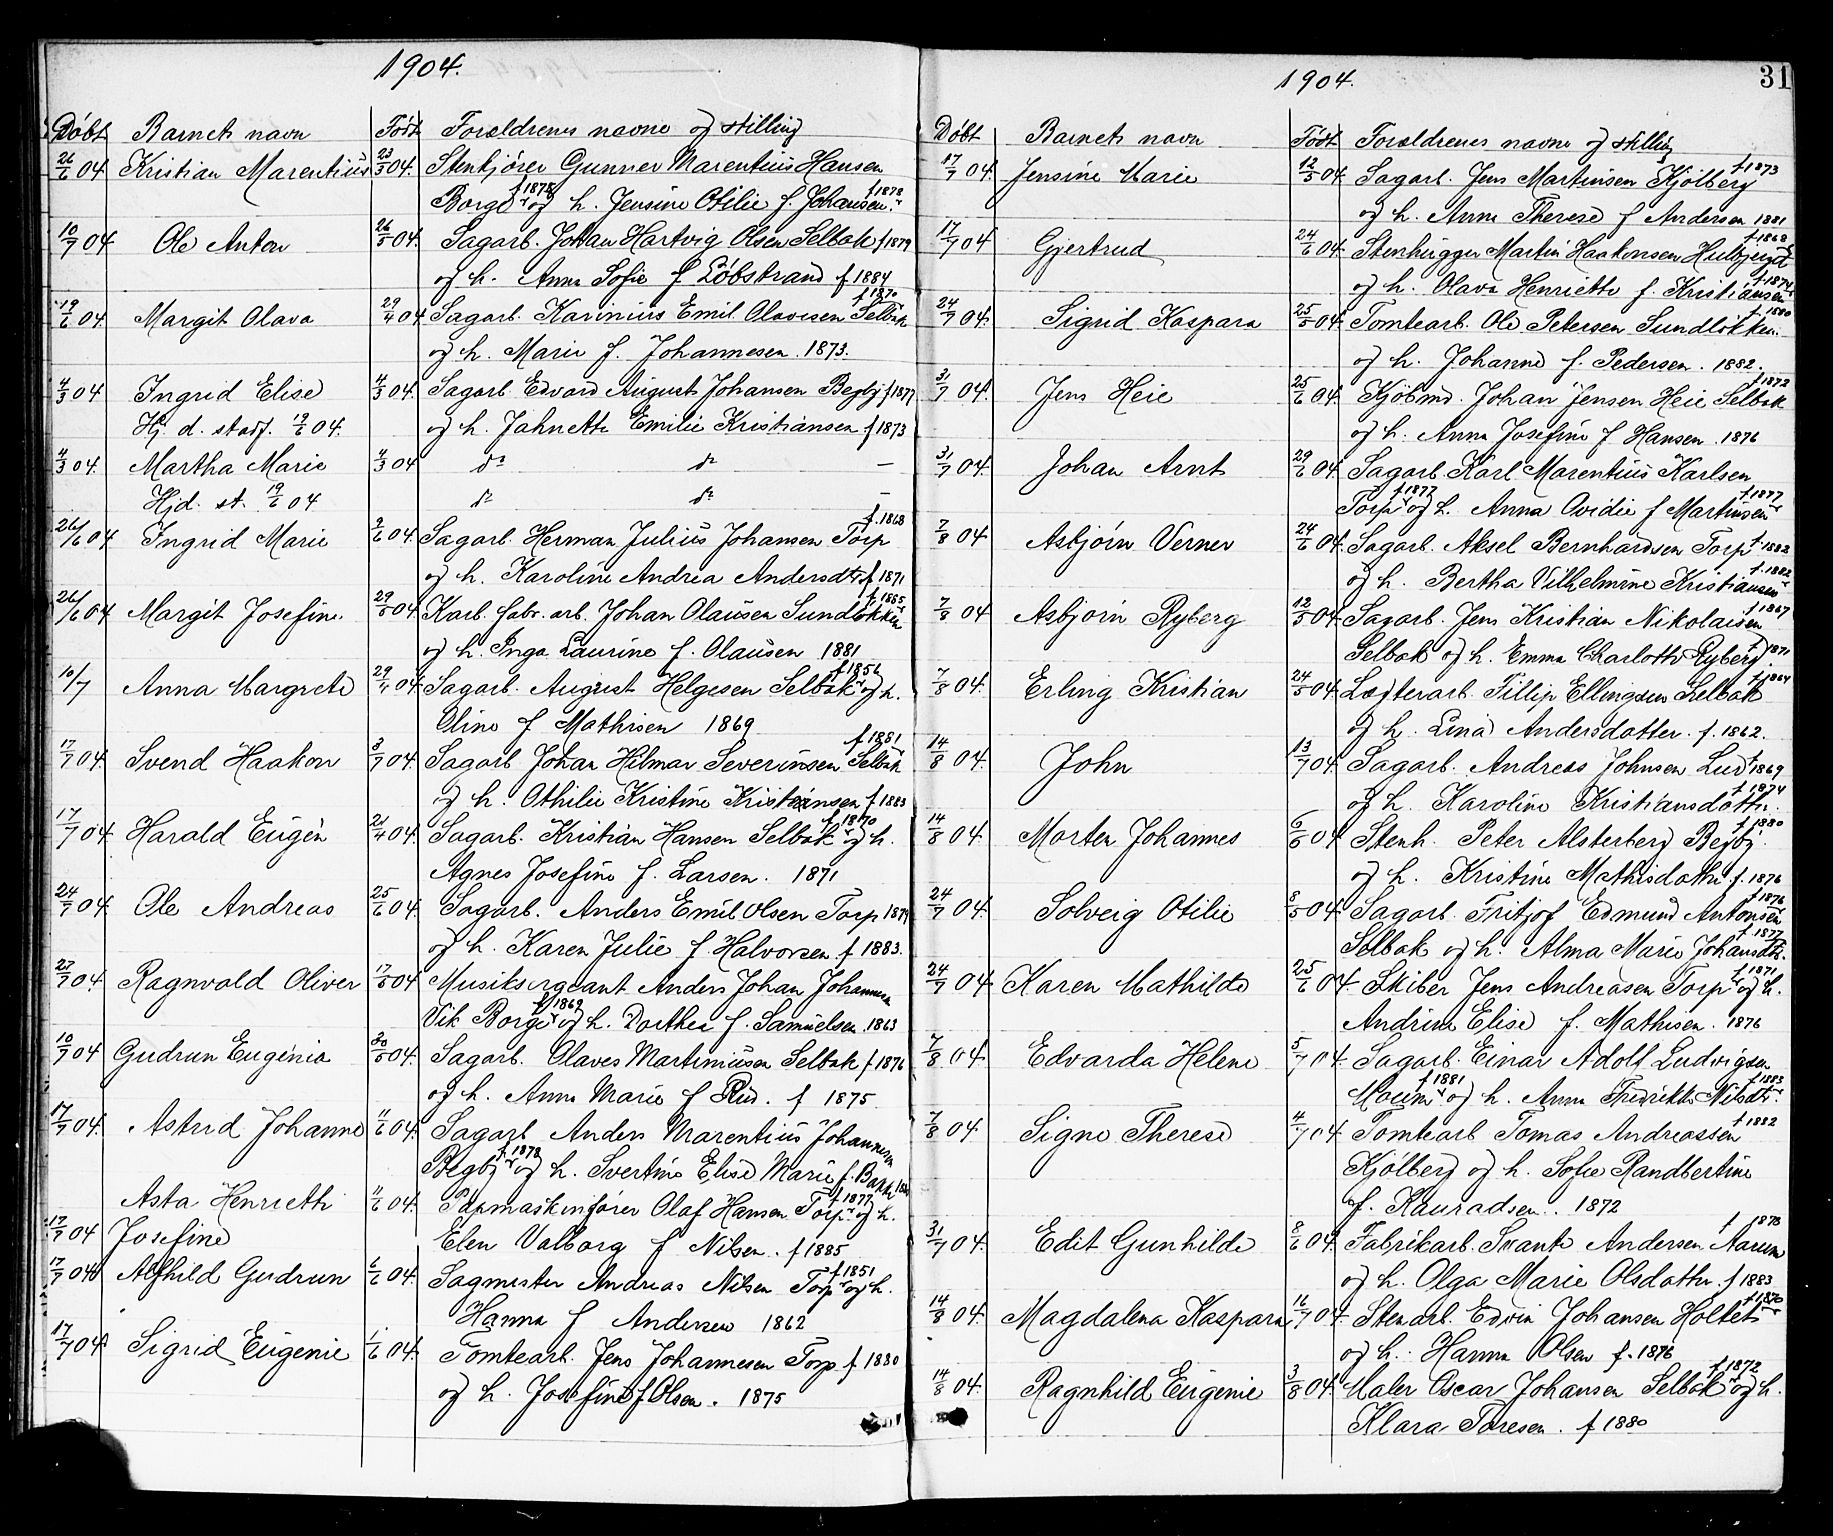 1904.
Döbt Barnets navn Födt Forældrenes navne og stilling
26/6 04 Kristian Marentius 23/3 04. Stenkjører Gunner Marentius Hansen
Borge f 1878 og h. Jensine Otilie f. Johansen. f 1878
10/7 04 Ole Anton 26/5 04. Sagarb. Johan Hartvig Olsen Selbak f 1879
og h. Anna Sofie f Löbstrand f 1884
19/6 04. Margit Olava 29/4 04 Sagarb. Karinius Emil Olavesen Selbak f 1870
og h. Marie f. Johannesen. 1873.
4/3 04 Ingrid Elise 4/3 04. Sagarb. Edvard August Johansen Begby f 1877
Hj. d. stadf. 19/6 04. og h. Jahnette Emilie Kristiansen f 1873
4/3 04. Martha Marie 4/3 04 do do —
Hjd. st. 19/6 04 do do —
26/6 04 Ingrid Marie 2/6 04. Sagarb. Herman Julius Johansen Torp f. 1868
og h. Karoline Andrea Andersdtr f 1871
26/6 04 Margit Josefine. 29/5 04 Karb. fabr. arb. Johan Olausen Sundløkken f. 1885
og h. Inga Laurine f. Olausen 1881
10/7 Anna Margrete 29/4 04 Sagarb. August Helgesen Selbak f 1856 og h.
Oline f Mathisen 1869
17/7 04. Svend Haakon 3/7 04. Sagarb Johan Hilmar Severinsen Selbak f 1881
og h. Othilie Kristine Kristiansen f 1883
17/7 04. Harald Eugen 21/4 04. Sagarb. Kristian Hansen Selbak f 1870 og h.
Agnes Josefine f. Larsen. 1871
24/7 04. Ole Andreas 25/6 04. Sagarb. Anders Emil Olsen Torp 1879
og h. Karen Julie f Halvorsen f 1883.
27/7 04. Ragnvald Oliver 17/5 04 Musiksergeant Anders Johan Johannesen
Vik Borge f 1869 og h. Dorthea f. Samuelsen. 1863
10/7 04 Gudrun Eugenia 30/5 04. Sagarb. Olaves Martiniusen Selbak f 1876
og h. Anna Marie f Rud. f 1875
17/7 04. Astrid Johanne 11/6 04. Sagarb Anders Marentius Johannesen
Begby f 1878 og h. Svertine Elise Marie f. Bakke
Asta Henrieth 11/6 04. Papmaskinfører Olaf Hansen Torp f 1877 og h.
17/7 04 Josefine Elen Valborg f Nilsen. f 1885
17/7 04 Alfhild Gudrun 6/6 04. Sagmester Andreas Nilsen Torp f 1851 og h.
Hanna f Andersen 1862
17/7 04 Sigrid Eugenie 1/6 04. Tomtearb. Jens Johannesen Torp f 1880
og h. Josefine f Olsen. 1875
1904. 31
Döbt Barnets navn Födt Forældrenes navne og stilling
17/7 04. Jensine Marie 12/5 04. Sagarb. Jens Martinsen Kjölberg f 1873
og h. Anna Therese f Andersen 1881
17/7 04 Gjertrud 24/6 04. Stenhugger Martin Haakonsen f 1868
og h. Olava Henriette f. Kristiansen f 1874
24/7 04. Sigrid Kaspara 25/5 04. Tomtearb. Ole Petersen Sundlökken. f 1880
og h. Johanne f. Pedersen. 1882.
31/7 04. Jens Heie 25/6 04. Kjöbmd. Johan Jensen Heie Selbak f 1872
og h. Anna Josefine f Hansen. 1876
31/7 04. Johan Arnt 29/6 04. Sagarb. Karl Marentius Karlsen
Torp f 1877 og h. Anna Ovidie f Martinsen f 1877
7/8 04 Asbjörn Verner 24/6 04. Sagarb. Aksel Bernhardsen Torp f. 1882
og h. Bertha Vilhelmine Kristiansen f. 1882
7/8 04 Asbjörn Ryberg 12/5 04. Sagarb. Jens Kristian Nikolaisen f 1867
Selbak og h. Emma Charlotte Ryberg f 1871
7/8 04. Erling Kristian 24/5 04. Lægterarb. Fillip Ellingsen Selbak f 1864
og h. Lina Andersdatter. f. 1862.
14/8 04. John 13/7 04. Sagarb. Andreas Johnsen Lud f 1869
og h. Karoline Kristiansdatter. f 1874
14/8 04. Morten Johannes 6/6 04. Stenh. Peter Alsterberg Begby. f 1880
og h. Kristine Mathisdatter f. 1876
24/7 04. Solveig Otilie 8/5 04. Sagarb. Fritjof Edmund Antonsen f 1876
Selbak og h. Alma Marie Johansdtr. f 1877
24/7 04. Karen Mathilde 25/6 04. Skiber Jens Andreasen Torp f 1871 og h.
Andrine Elise f. Mathisen. 1876
7/8 04. Edvarda Helene 5/7 04. Sagarb. Einar Adolf Ludvigsen
Moum f 1881 og h. Anna Fredrikke Nilsdtr. f 1883
7/8 04 Signe Therese 4/7 04 Tomtearb Tomas Andreassen f 1882
Kjölberg og h. Sofie Randbertine
f. Kauradsen. 1872
31/7 04. Edit Gunhilde 8/6 04. Fabrikarb. Svante Andersen Aarum f 1878
og h. Olga Marie Olsdatter. f 1883
14/8 04. Magdalena Kaspara 16/7 04. Stenarb. Edvin Johansen Holtet f 1870
og h. Hanna Olsen f. 1876
14/8 04. Ragnhild Eugenie 3/8 04. Maler Oscar Johansen Selbak f 1872 og h.
Klara Toresen. f 1880